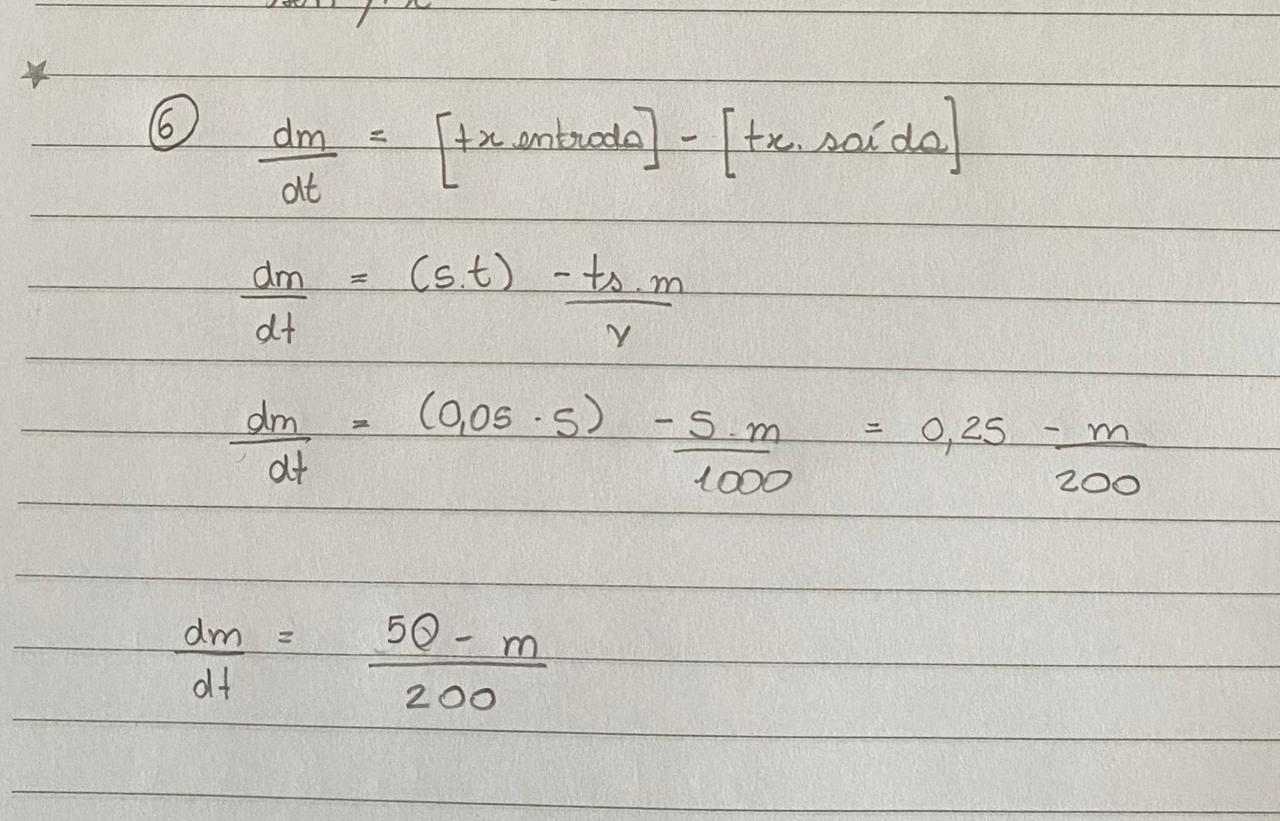 ⑥ dm/dt = [tx entrada] - [tx. saída]
dm/dt = (s.t) - ts.m/v
dm/dt = (0,05 . 5) - 5.m/1000 = 0,25 - m/200
dm/dt = 50 - m/200